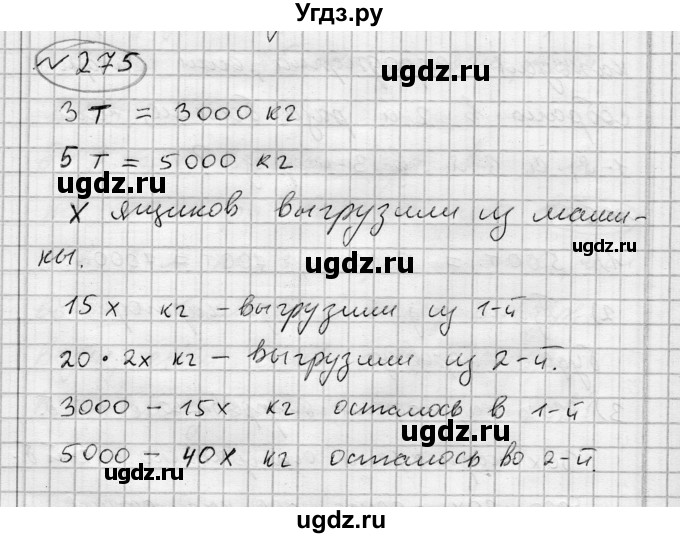 Угдз.ру
√ 275
ugdz.ru
3 т = 3000 кг
5 т = 5000 кг
ugdz.ru
ugdz.ru
x ящиков выгрузили из маши-
ugdz.ru
ны.
ugdz.ru
15x кг - выгрузили из 1-й
20 · 2x кг - выгрузили из 2-й.
ugdz.ru
3000 - 15x кг осталось в 1-й
ugdz.ru
5000 - 40x кг осталось во 2-й.
ugdz.ru
ugdz.ru